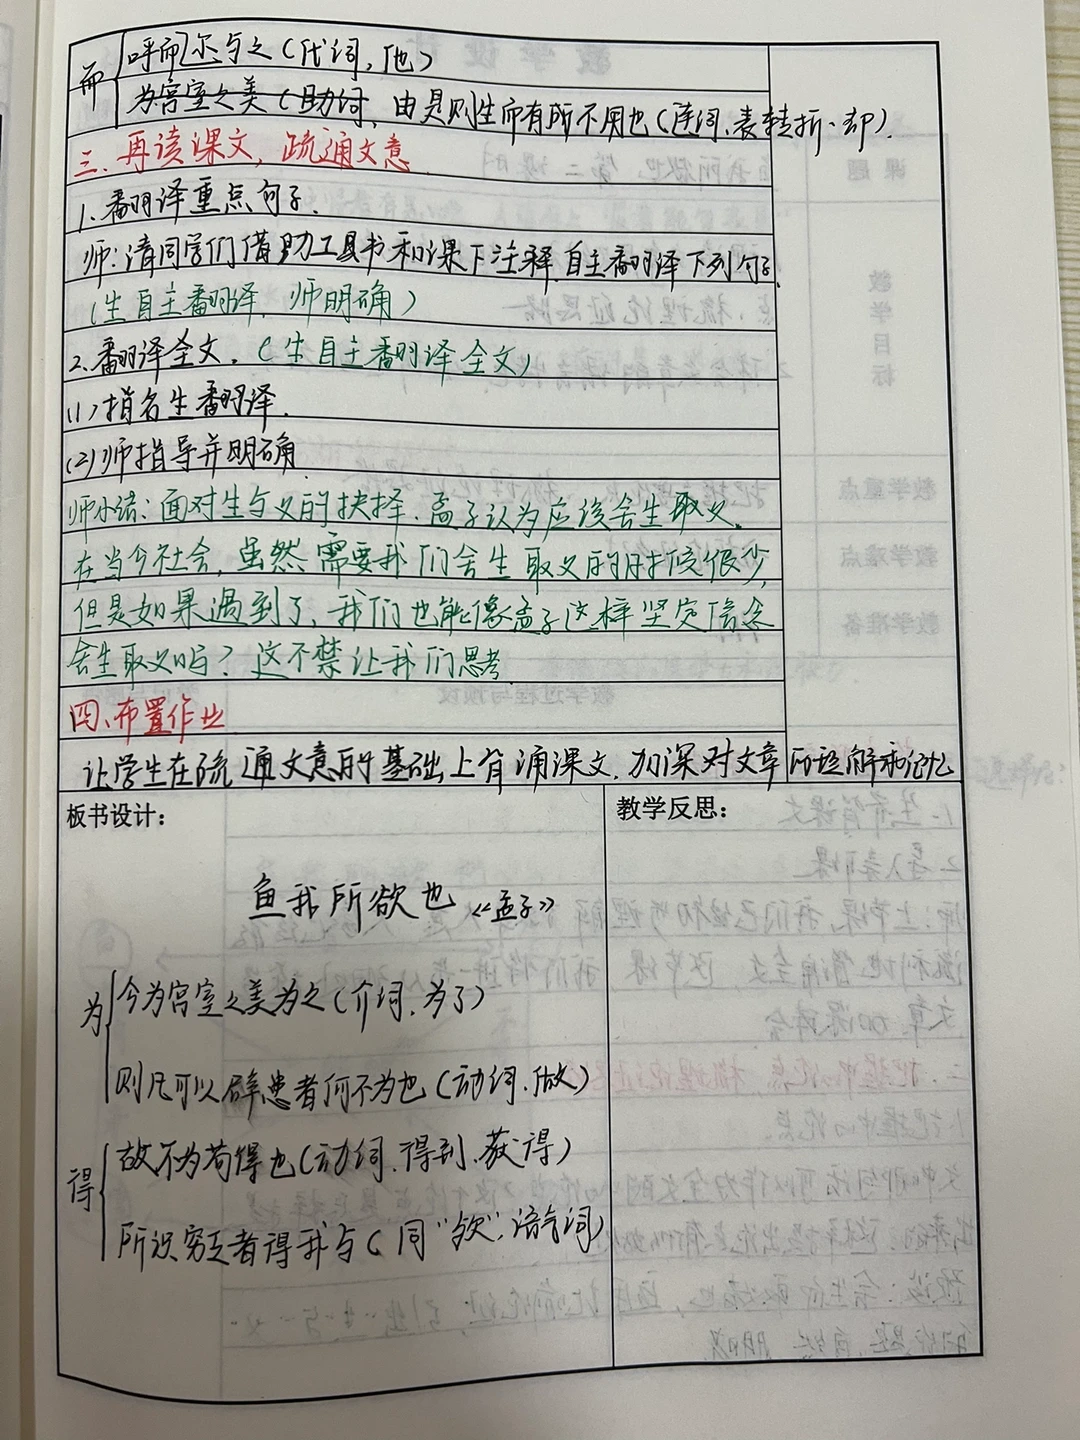 而
呼而尔与之(代词,他)
为宫室之美(助词, 由是则生而有所不用也(连词,表转折.却).
三.再读课文,疏通文意
1.翻译重点句子.
师:请同学们借助工具书和课下注释,自主翻译下列句子.
(生自主翻译,师明确)
2.翻译全文.(生自主翻译全文)
(1)指名生翻译.
(2)师指导并明确
师小结:面对生与义的抉择.孟子认为应该舍生取义.
在当今社会,虽然需要我们舍生取义的时候很少,
但是如果遇到了,我们也能像孟子这样坚定信念
舍生取义吗?这不禁让我们思考
四.布置作业
让学生在疏通文意的基础上背诵课文.加深对文章的理解和记忆
板书设计:
鱼我所欲也《孟子》
为
今为宫室之美为之(介词,为了)
则凡可以辟患者何不为也(动词.做)
得
故不为苟得也(动词.得到.获得)
所识穷乏者得我与(同"欤".语气词)
教学反思: